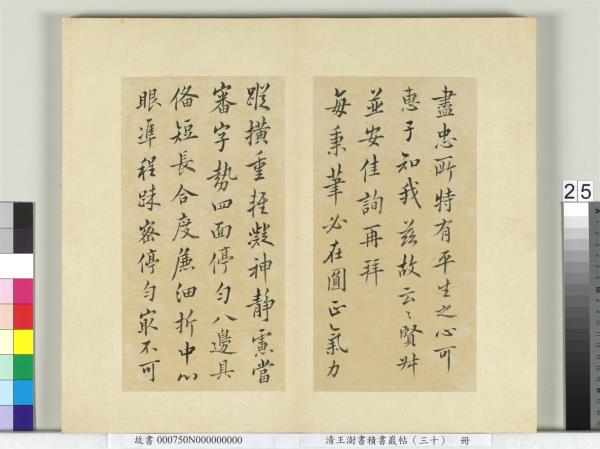 盡忠所特有平生之心可
惠子知我茲故云〻賢艸
並安佳詢再拜
每秉筆必在圓正氣力
蹤橫重輕凝神靜慮當
審字勢四面停勻八邊具
俻短長合度麄細折中心
眼準程踈密停勻㝡不可
25
故書 000750N000000000
清王澍書積書巖帖（三十） 冊